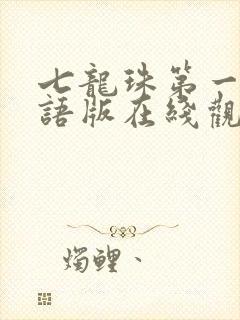 七龍珠第一
語版在綫觀
燭鯉、